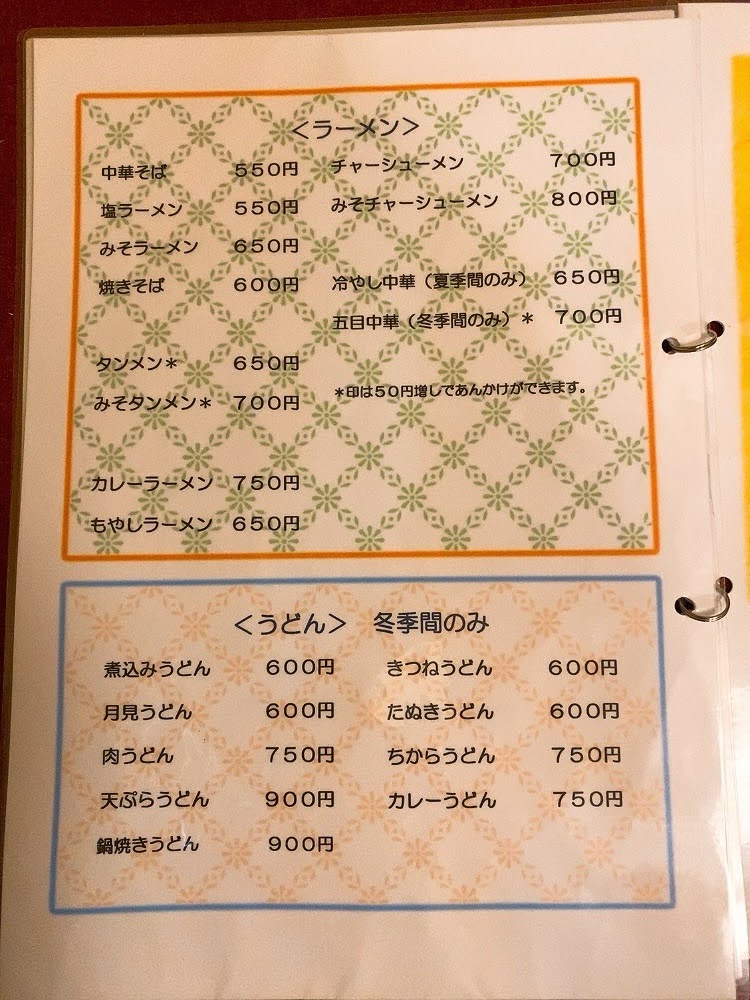 ＜ラーメン＞
中華そば ５５０円 チャーシューメン ７００円
塩ラーメン ５５０円 みそチャーシューメン ８００円
みそラーメン ６５０円
焼きそば ６００円 冷やし中華（夏季間のみ） ６５０円
五目中華（冬季間のみ）＊ ７００円
タンメン＊ ６５０円
みそタンメン＊ ７００円 ＊印は５０円増しであんかけができます。
カレーラーメン ７５０円
もやしラーメン ６５０円
＜うどん＞ 冬季間のみ
煮込みうどん ６００円 きつねうどん ６００円
月見うどん ６００円 たぬきうどん ６００円
肉うどん ７５０円 ちからうどん ７５０円
天ぷらうどん ９００円 カレーうどん ７５０円
鍋焼きうどん ９００円